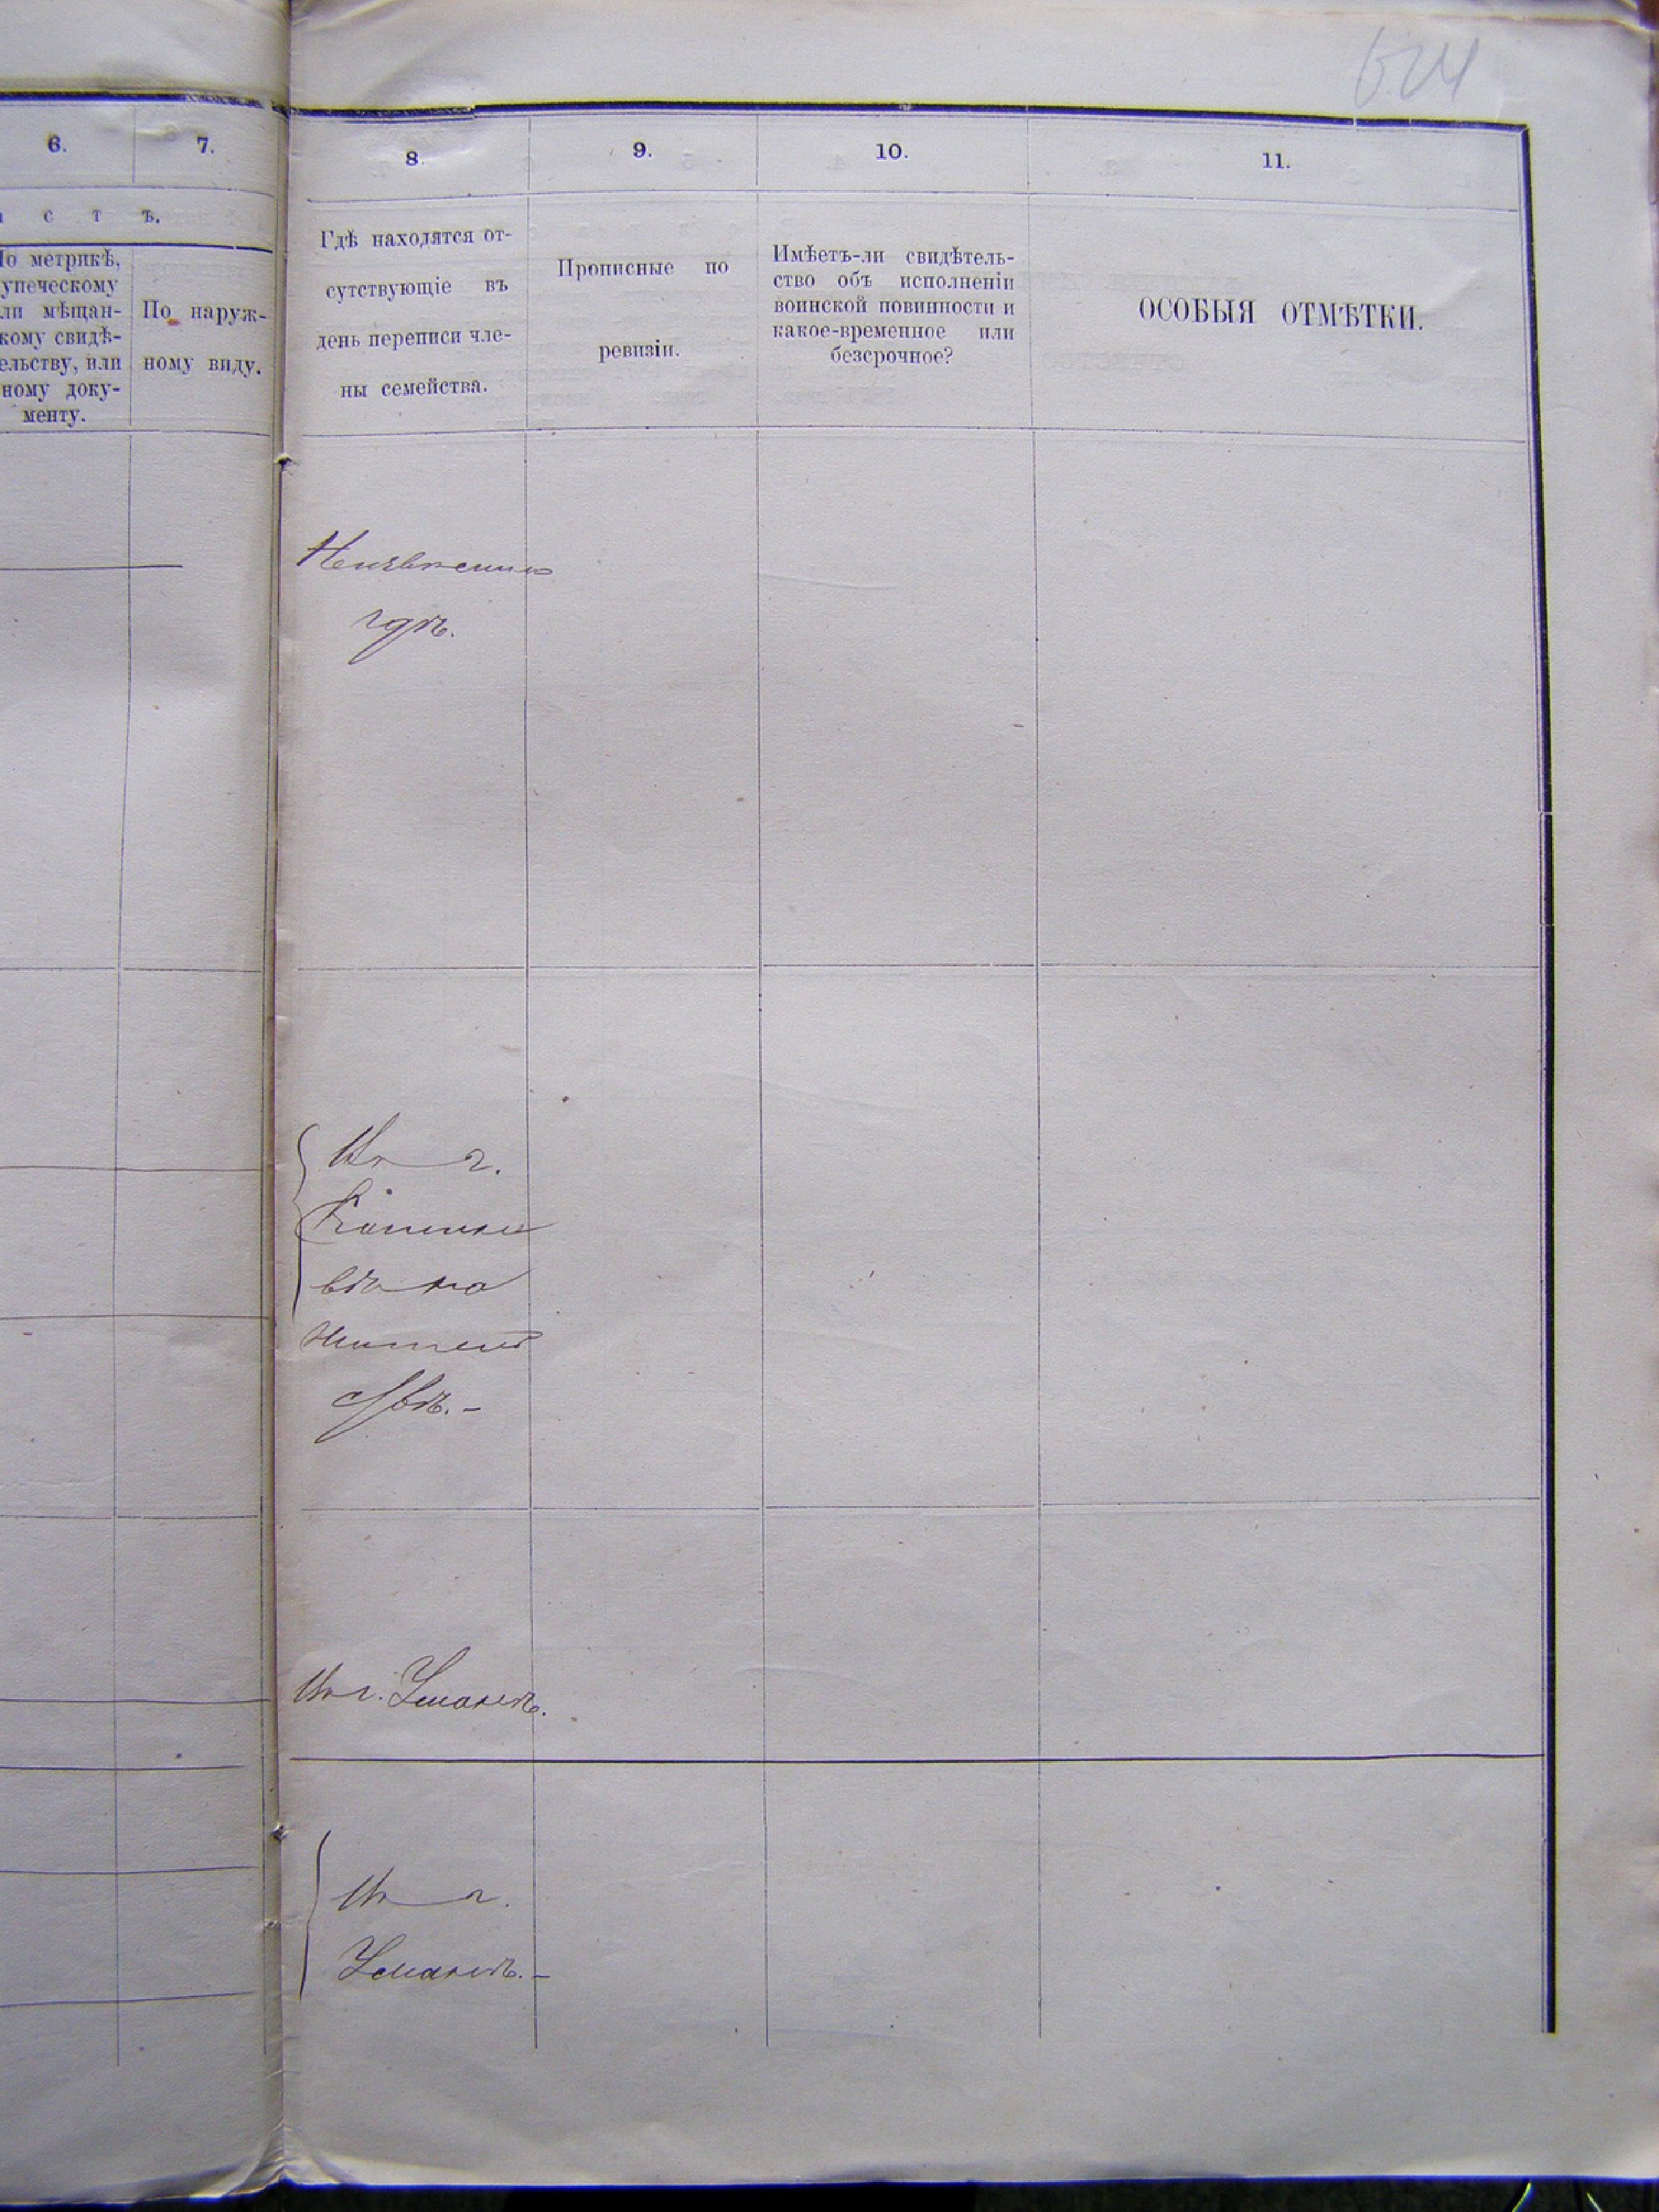 624
6.
7.
8.
9.
10.
11.
с т ъ.
По метрикѣ,
упеческому
ли мѣщан-
кому свидѣ-
ельству, или
ному доку-
менту.
По наруж-
ному виду.
Гдѣ находятся от-
сутствующіе въ
день переписи чле-
ны семейства.
Прописные по
ревизіи.
Имѣетъ-ли свидѣтель-
ство объ исполненіи
воинской повинности и
какое-временное или
безсрочное?
ОСОБЫЯ ОТМѢТКИ.
Неизвѣстно
гдѣ.
Въ г.
на
жител
ствѣ.-
Въ г. Уманѣ.
Въ г.
Уманѣ.-